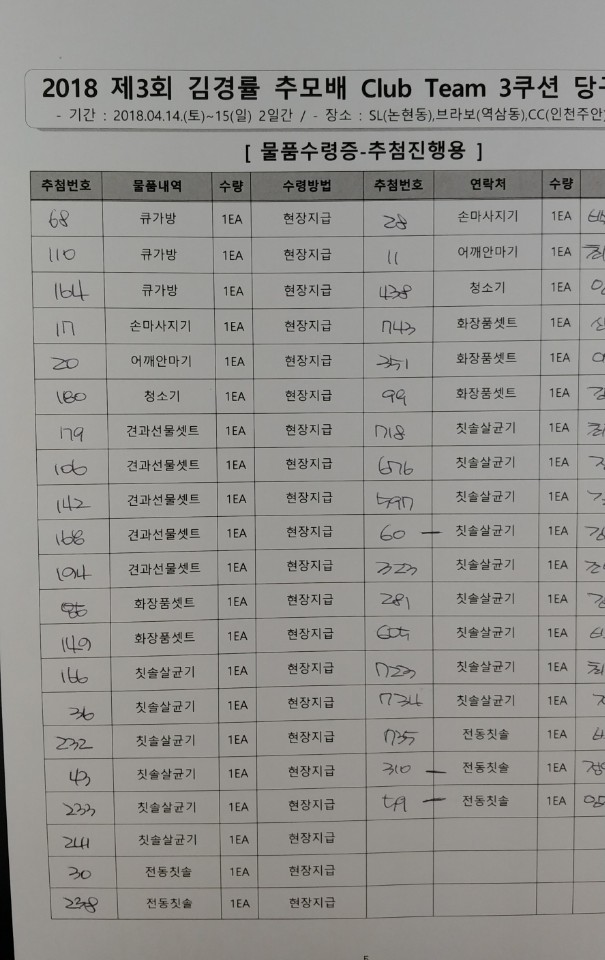 2018 제3회 김경률 추모배 Club Team 3쿠션 당
- 기간 : 2018.04.14.(토)~15(일) 2일간 / - 장소 : SL(논현동),브라보(역삼동),CC(인천주안)
[ 물품수령증-추첨진행용 ]
추첨번호 물품내역 수량 수령방법 추첨번호 연락처 수량
68 큐가방 1EA 현장지급 28 손마사지기 1EA
110 큐가방 1EA 현장지급 11 어깨안마기 1EA
164 큐가방 1EA 현장지급 438 청소기 1EA
17 손마사지기 1EA 현장지급 743 화장품셋트 1EA
20 어깨안마기 1EA 현장지급 351 화장품셋트 1EA
180 청소기 1EA 현장지급 99 화장품셋트 1EA
179 견과선물셋트 1EA 현장지급 718 칫솔살균기 1EA
106 견과선물셋트 1EA 현장지급 676 칫솔살균기 1EA
142 견과선물셋트 1EA 현장지급 597 칫솔살균기 1EA
168 견과선물셋트 1EA 현장지급 60 - 칫솔살균기 1EA
194 견과선물셋트 1EA 현장지급 323 칫솔살균기 1EA
화장품셋트 1EA 현장지급 281 칫솔살균기 1EA
149 화장품셋트 1EA 현장지급 605 칫솔살균기 1EA
166 칫솔살균기 1EA 현장지급 723 칫솔살균기 1EA
36 칫솔살균기 1EA 현장지급 734 칫솔살균기 1EA
232 칫솔살균기 1EA 현장지급 735 전동칫솔 1EA
43 칫솔살균기 1EA 현장지급 310 - 전동칫솔 1EA
233 칫솔살균기 1EA 현장지급 59 - 전동칫솔 1EA
241 칫솔살균기 1EA 현장지급
30 전동칫솔 1EA 현장지급
238 전동칫솔 1EA 현장지급